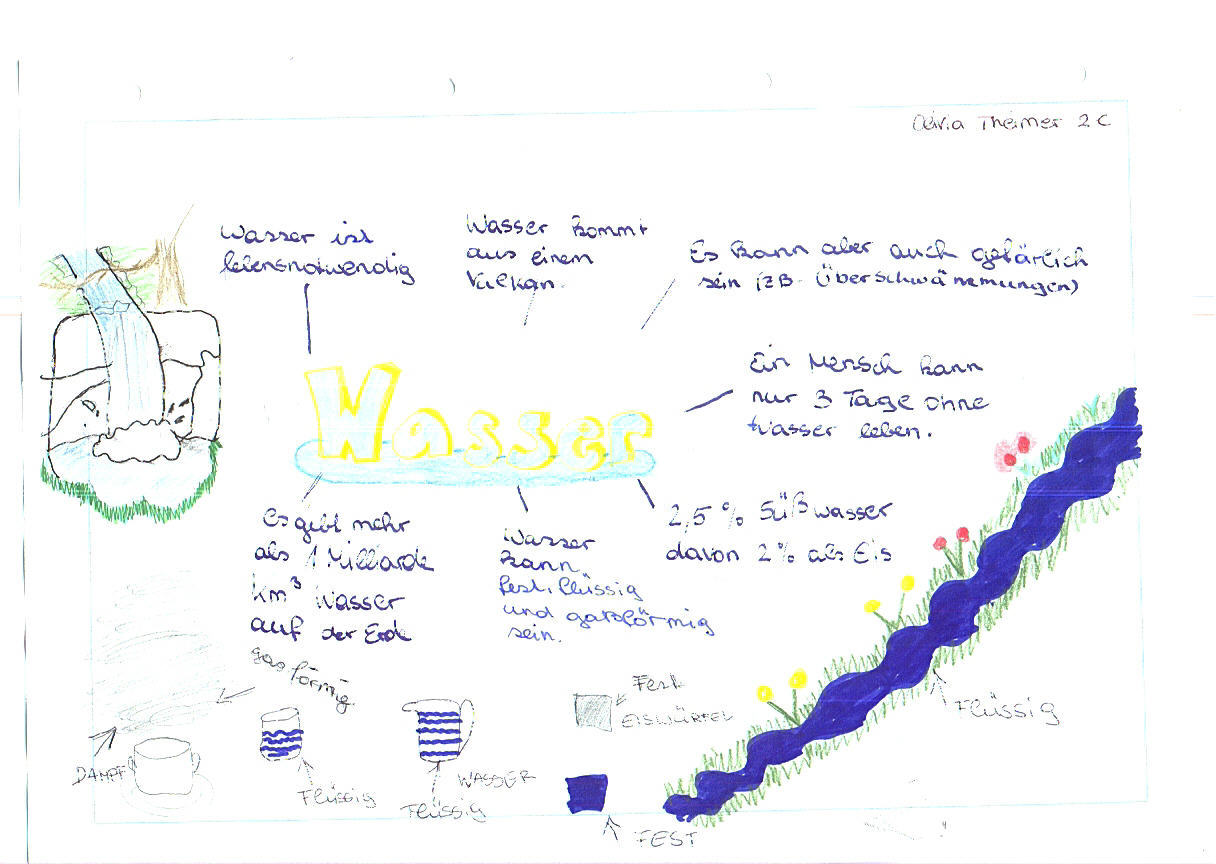 Olivia Theimer 2C
Wasser ist
lebensnotwendig
Wasser kommt
aus einem
Vulkan.
Es kann aber auch gefärlich
sein (zB. Überschwämmungen)
Ein Mensch kann
nur 3 Tage ohne
Wasser leben.
Wasser
Es gibt mehr
als 1 Milliarde
km³ Wasser
auf der Erde
Wasser
kann
fest, flüssig
und gatsförmig
sein.
2,5 % Süßwasser
davon 2% als Eis
gasförmig
DAMPF
Flüssig
WASSER
Flüssig
Fest
EISWÜRFEL
FEST
Flüssig